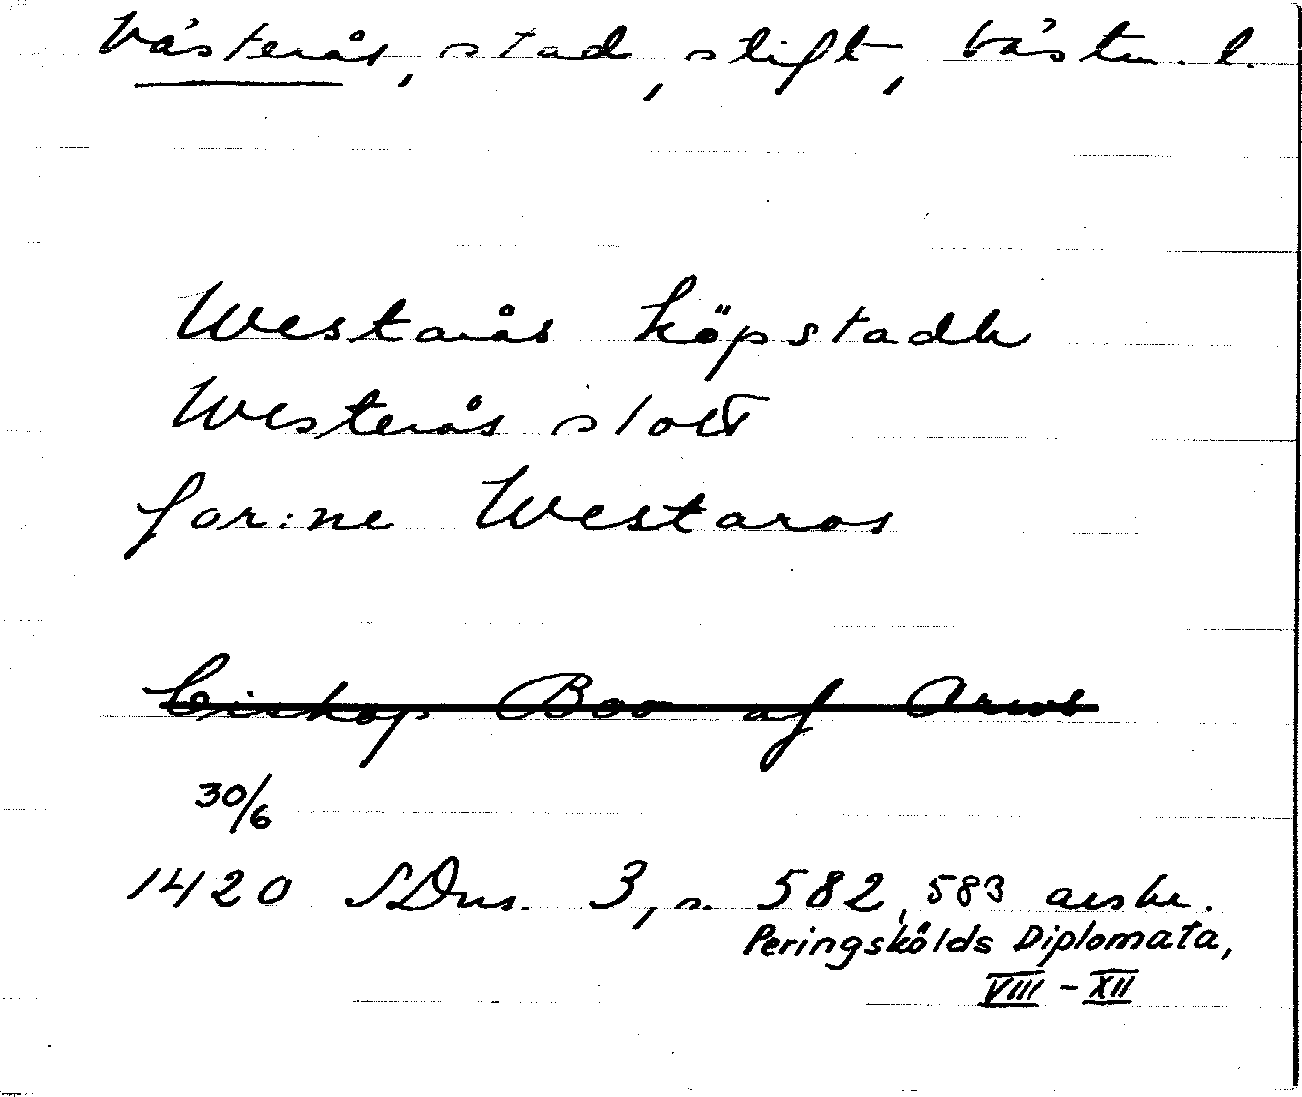 Västerås, stad, stift, Västm. l.
Westarås köpstadh
Westerås slott
for:ne Westaros
Biskop Boo af Aroos
30/6
1420 SDns. 3, s. 582, 583 avskr.
Peringskölds Diplomata,
VIII - XII